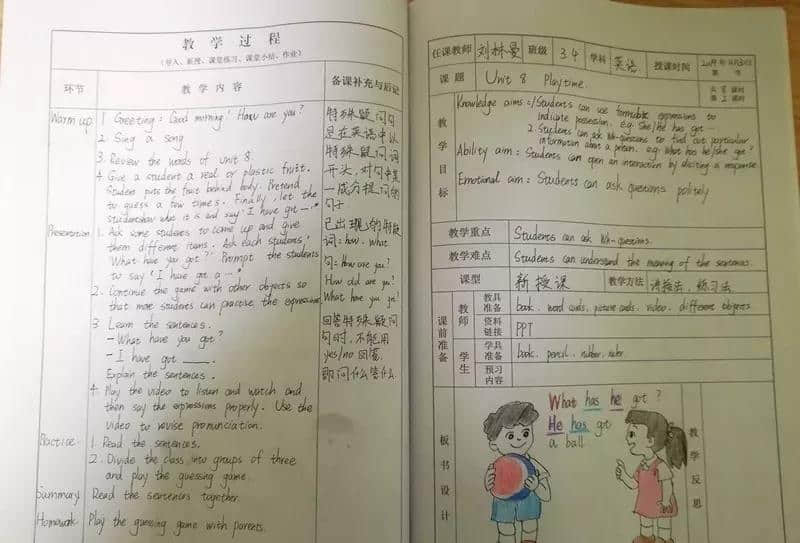 教学过程
(导入、新授、课堂练习、课堂小结、作业)
环节 教学内容 备课补充与后记
Warm up 1 Greeting: Good morning! How are you?
2 Sing a song
3 Review the words of Unit 8.
4 Give a student a real or plastic fruit.
Student puts the fruit behind body. Pretend
to guess a few times. Finally, let the
student show what it is and say "I have got —"
Presentation 1. Ask some students to come up and give
them different items. Ask each students,
"What have you got?" Prompt the students
to say "I have got a —"
2. Continue the game with other objects so
that more students can practise the expression
3 Learn the sentences.
– What have you got?
– I have got ____.
Explain the sentences.
4. Play the video to listen and watch and
then say the expressions properly. Use the
video to revise pronunciation.
Practice 1. Read the sentences.
2. Divide the class into groups of three
and play the guessing game.
Summary Read the sentences together.
Homework Play the guessing game with parents.
特殊疑问句
是在英语中以
特殊疑问词
开头,对句中某
一成分提问的
句子
已出现的特殊
词:how, what
句:How are you?
How old are you?
What have you got?
回答特殊疑问
句时,不能用
yes/no回答,
即问什么答什么
任课教师 刘林曼 班级 3.4 学科 英语 授课时间 2019年
课题 Unit 8 Playtime.
教学目标
Knowledge aims: 1 Students can use formulaic expressions to
indicate possession. e.g. She/He has got —
2. Students can ask wh-questions to find out particular
information about a person. e.g. What has he/she got?
Ability aim: Students can open an interaction by eliciting a response
Emotional aim: Students can ask questions politely
教学重点 Students can ask Wh-questions.
教学难点 Students can understand the meaning of the sentences.
课型 新授课 教学方法 讲授法、练习法
课前准备
教师 教具准备 book, word cards, picture cards, video, different objects
资料链接 PPT
学生 学具准备 book, pencil, rubber, ruler.
预习内容
板书设计
What has he got?
He has got
a ball
教学反思